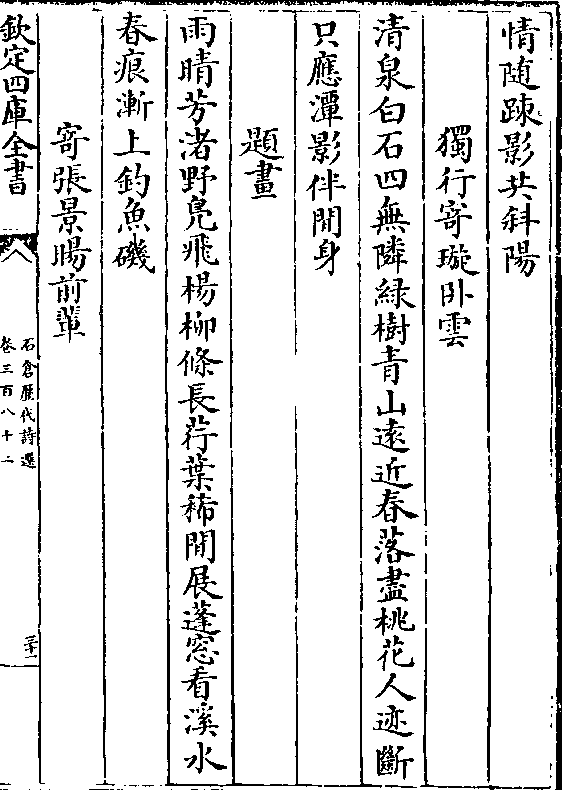 情随踈影共斜陽
獨行寄璇卧雲
清泉白石四無隣緑樹青山遠近春落盡桃花人迹斷
只應潭影伴閒身
題畫
雨晴芳渚野鳬飛楊柳條長荇葉稀閒展蓬窓看溪水
春痕漸上釣魚磯
寄張景暘前輩
欽定四庫全書
石倉歷代詩選
卷三百八十二